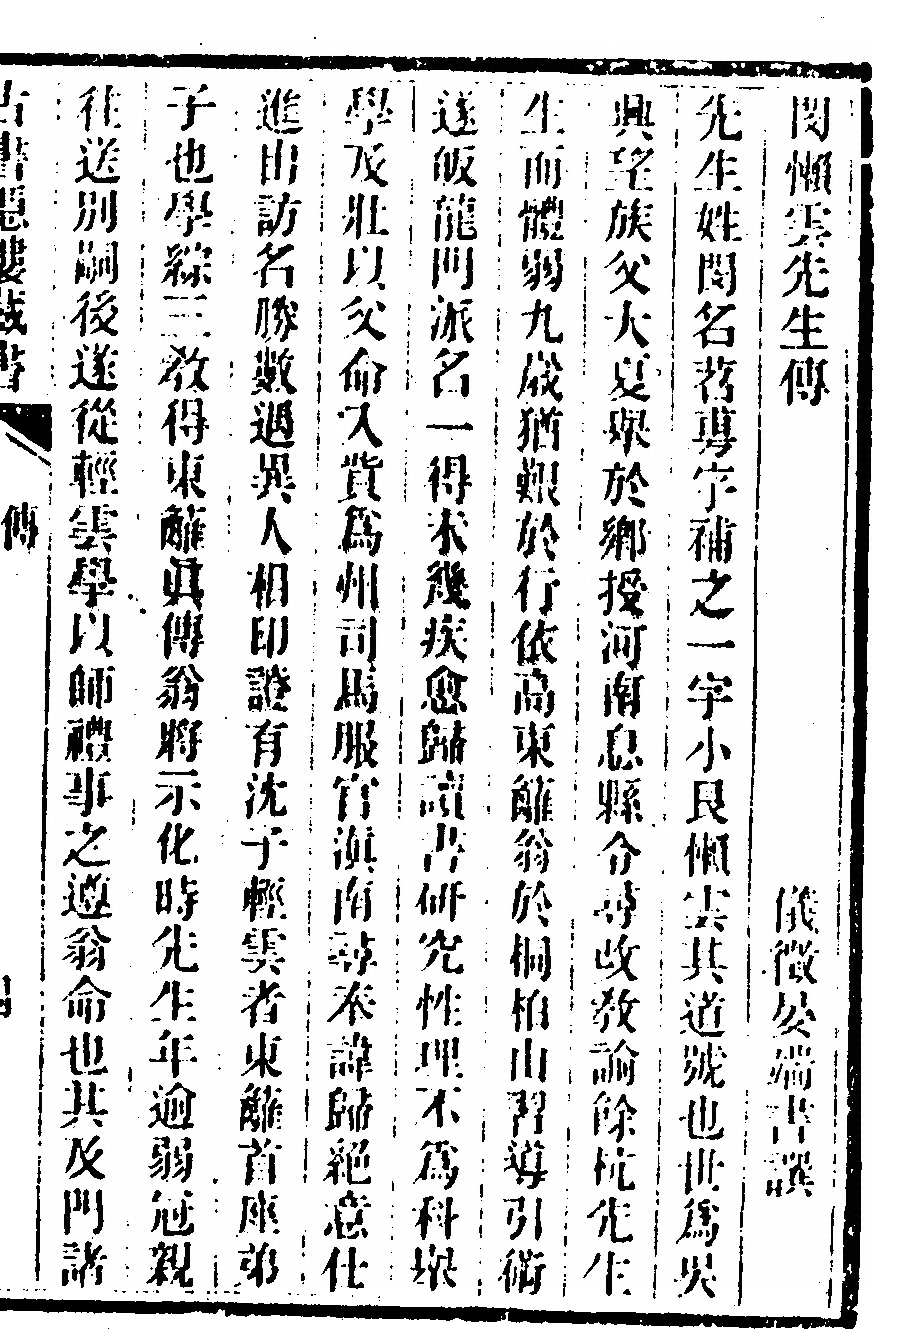 閔懶雲先生傳　儀徵晏端書譔
先生姓閔名苕旉字補之一字小艮懶雲其道號也世爲吳
興望族父大夏舉於鄉授河南息縣令尋改教諭餘杭先生
生而體弱九歲猶艱於行依高東籬翁於桐柏山習導引術
遂皈龍門派名一得未幾疾愈歸讀書研究性理不爲科舉
學及壯以父命入貲爲州司馬服官滇南尋奉諱歸絕意仕
進出訪名勝數遇異人相印證有沈子輕雲者東籬首座弟
子也學綜三教得東籬眞傳翁將示化時先生年逾弱冠親
往送別嗣後遂從輕雲學以師禮事之遵翁命也其及門諸
古書隱樓藏書　傳